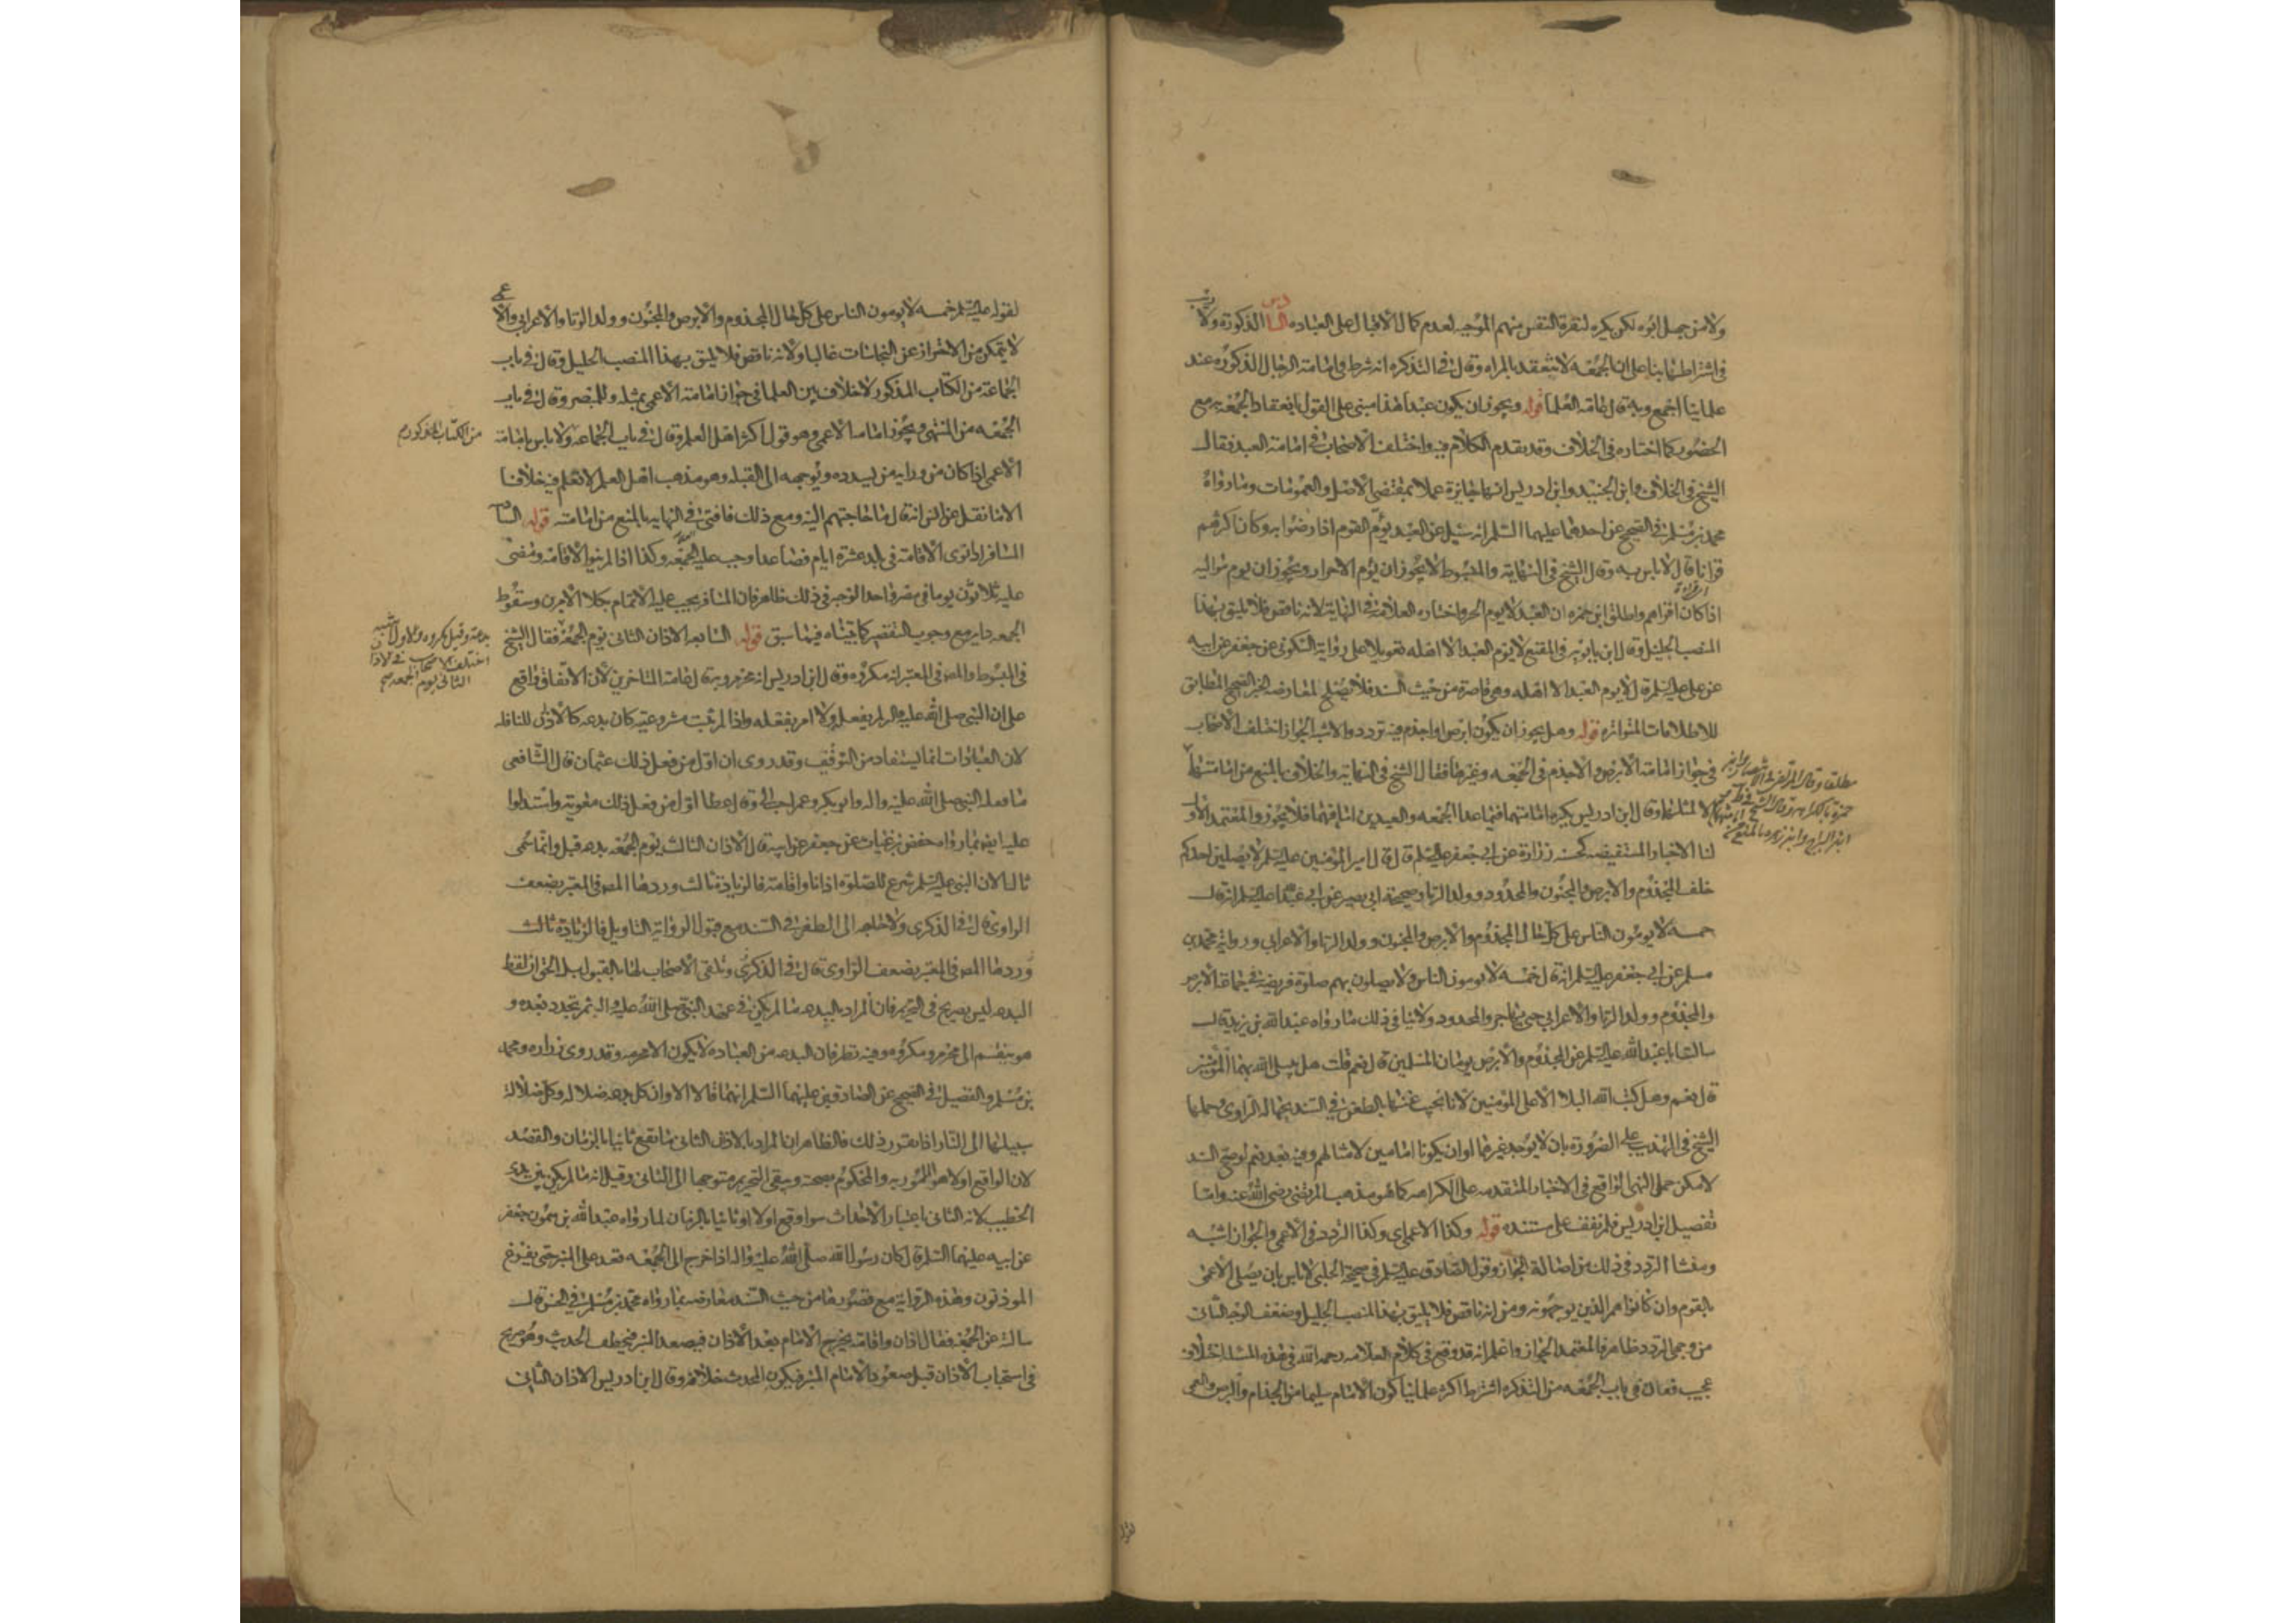 ولا من جهل ابوه لكن يكره لنفرة النفس منهم الموجبه لعدم كمال الاقبال على العباده السادس الذكورة ولا ريب
فى اشتراطها بناء على ان الجمعه لا تنعقد بالمراه وقال فى التذكره انه شرط فى امامة الرجال الذكوره عند
علماينا اجمع وبه قال عامة العلما قوله ويجوز ان يكون عبدا هذا مبنى على القول بانعقاد الجمعة به مع
الحضور كما اختاره فى الخلاف وقد تقدم الكلام فيه واختلف الاصحاب فى امامة العبد فقال
الشيخ فى الخلاف وابن الجنيد وابن ادريس انها جايزة عملا بمقتضى الاصل والعمومات وما رواه
محمد بن مسلم فى الصحيح عن احدهما عليهما السلم انه سئل عن العبد يؤم القوم اذا رضوا به وكان اكثرهم
قرانا قال لا باس به وقال الشيخ فى النهاية والمبسوط لا يجوز ان يؤم الاحرار ويجوز ان يوم مواليه
اذا كان اقراهم واطلق ابن حمزه ان العبد لا يوم الحر واختاره العلامة فى النهاية لانه ناقص فلا يليق بهذا
المنصب الجليل وقال ابن بابويه فى المقنع لا يؤم العبد الا اهله تعويلا على رواية السكونى عن جعفر عن ابيه
عن على عليه السلم قال لا يوم العبد الا اهله وهى قاصرة من حيث السند فلا تصلح لمعارضة الخبر الصحيح المطابق
للاطلاقات المتواتره قوله وهل يجوز ان يكون ابرص او اجذم فيه تردد والاشبه الجواز اختلف الاصحاب
فى جواز امامة الابرص والاجذم فى الجمعه وغيرها فقال الشيخ فى النهاية والخلاف بالمنع من امامتهما
مطلقا وقال المرتضى فى الانتصار وابن
حمزة بالكراهه وقال الشيخ فى
ابن البراج وابن زهره بالمنع من
الا لمثلهما وقال ابن ادريس يكره امامتهما فيما عدا الجمعه والعيدين اما فيهما فلا يجوز والمعتمد الاول
لنا الاخبار المستفيضه كحسنه زرارة عن ابى جعفر عليه السلم قال قال امير المؤمنين عليه السلم لا يصلين احدكم
خلف المجذوم والابرص والمجنون والمحدود وولد الزنا وصحيحة ابى بصير عن ابى عبد الله عليه السلم انه قال
خمسه لا يومون الناس على كل حال المجذوم والابرص والمجنون وولد الزنا والاعرابى ورواية محمد بن
مسلم عن ابى جعفر عليه السلم انه قال خمسه لا يومون الناس ولا يصلون بهم صلوة فريضة فى جماعة الابرص
والمجذوم وولد الزنا والاعرابى حتى يهاجر والمحدود ولا ينافى ذلك ما رواه عبد الله بن يزيد قال
سالت ابا عبد الله عليه السلم عن المجذوم والابرص يومان المسلمين قال نعم قلت هل يبتلى الله بهما المؤمن
قال نعم وهل كتب الله البلا الا على المؤمنين لانا نجيب عنها بالطعن فى السند بجهالة الراوى وحملها
الشيخ فى التهذيب على الضرورة بان لا يوجد غيرهما او ان يكونا امامين لامثالهم وفيه بعد نعم لو صح السند
لامكن حمل النهى الواقع فى الاخبار المتقدمه على الكراهه كما هو مذهب المرتضى رضى الله عنه واما
تفصيل ابن ادريس فلم نقف على مستنده قوله وكذا الاعمى اى وكذا التردد فى الاعمى والجواز اشبه
ومنشا التردد فى ذلك من اصالة الجواز وقول الصادق عليه السلم فى صحيحة الحلبى لا باس بان يصلى الاعمى
بالقوم وان كانوا هم الذين يوجهونه ومن انه ناقص فلا يليق بهذا المنصب الجليل وضعف الوجه الثانى
من وجهى التردد ظاهر فالمعتمد الجواز واعلم انه قد وقع فى كلام العلامه رحمه الله فى هذه المسئلة اختلاف
عجيب فقال فى باب الجمعه من التذكره اشترط اكثر علماينا كون الامام سليما من الجذام والبرص والعمى
لقوله عليه السلم خمسه لا يومون الناس على كل حال المجذوم والابرص والمجنون وولد الزنا والاعرابى والاعمى
لا يتمكن من الاحتراز عن النجاسات غالبا ولانه ناقص فلا يليق بهذا المنصب الجليل وقال فى باب
الجماعة من الكتاب المذكور لا خلاف بين العلما فى جواز امامة الاعمى بمثله وللمبصر وقال فى باب
الجمعه من المنتهى ويجوز امامة الاعمى وهو قول اكثر اهل العلم وقال فى باب الجماعه ولا باس بامامة
من الكتاب المذكور
الاعمى اذا كان من ورايه من يسدده ويوجهه الى القبله وهو مذهب اهل العلم لا نعلم فيه خلافا
الا ما نقل عن انس انه قال ما حاجتهم اليه ومع ذلك فافتى فى النهايه بالمنع من امامته قوله السادسه
المسافر اذا نوى الاقامة فى بلد عشرة ايام فصاعدا وجب عليه الجمعه وكذا اذا لم ينو الاقامة ومضى
عليه ثلاثون يوما فى مصر واحد الوجه فى ذلك ظاهر فان المسافر يجب عليه الاتمام بكلا الامرين وسقوط
الجمعه داير مع وجوب التقصير كما بيناه فيما سبق قوله السابعه الاذان الثانى يوم الجمعة فقال الشيخ
بدعة وقيل مكروه والاول اشبه
اختلف الاصحاب فى الاذان
الثانى يوم الجمعه صح
فى المبسوط والمص فى المعتبر انه مكروه وقال ابن ادريس انه محرم وبه قال عامة المتاخرين لان الاتفاق واقع
على ان النبى صلى الله عليه واله لم يفعله ولا امر بفعله واذا لم تثبت مشروعيته كان بدعه كالاذان للنافله
لان العبادات انما يستفاد من التوقيف وقد روى ان اول من فعل ذلك عثمان قال الشافعى
ما فعله النبى صلى الله عليه واله وابو بكر وعمر احب الى وقال عطا اول من فعل ذلك معويه واستدلوا
عليه ايضا بما رواه حفص بن غياث عن جعفر عن ابيه قال الاذان الثالث يوم الجمعه بدعه قيل وانما سمى
ثالثا لان النبى عليه السلم شرع للصلوه اذانا واقامة فالزيادة ثالث وردها المص فى المعتبر بضعف
الراوى قال فى الذكرى ولا حاجه الى الطعن فى السند مع قبول الرواية التاويل فالزيادة ثالث
وردها المص فى المعتبر بضعف الراوى قال فى الذكرى وتلقى الاصحاب لها بالقبول بل الحق ان لفظ
البدعه ليس بصريح فى التحريم فان المراد بالبدعه ما لم يكن فى عهد النبى صلى الله عليه واله ثم تجدد بعده و
هو ينقسم الى محرم ومكروه وفيه نظر فان البدعه من العباده لا يكون الا محرمه وقد روى زراره ومحمد
بن مسلم والفضيل فى الصحيح عن الصادقين عليهما السلم انهما قالا الا وان كل بدعه ضلاله وكل ضلالة
سبيلها الى النار اذا تقرر ذلك فالظاهر ان المراد بالاذان الثانى ما يقع ثانيا بالزمان والقصد
لان الواقع اولا هو المامور به والمحكوم بصحته ويبقى التحريم متوجها الى الثانى وقيل انه ما لم يكن بين يدى
الخطيب لانه الثانى باعتبار الاحداث سوا وقع اولا او ثانيا بالزمان لما رواه عبد الله بن ميمون عن جعفر
عن ابيه عليهما السلم قال كان رسول الله صلى الله عليه واله اذا خرج الى الجمعه قعد على المنبر حتى يفرغ
الموذنون وهذه الرواية مع قصورها من حيث السند معارضه بما رواه محمد بن مسلم فى الحسن قال
سالته عن الجمعة فقال اذان واقامة يخرج الامام بعد الاذان فيصعد المنبر فيخطب الحديث وهو صريح
فى استحباب الاذان قبل صعود الامام المنبر فيكون المحدث خلافه وقال ابن ادريس الاذان الثانى